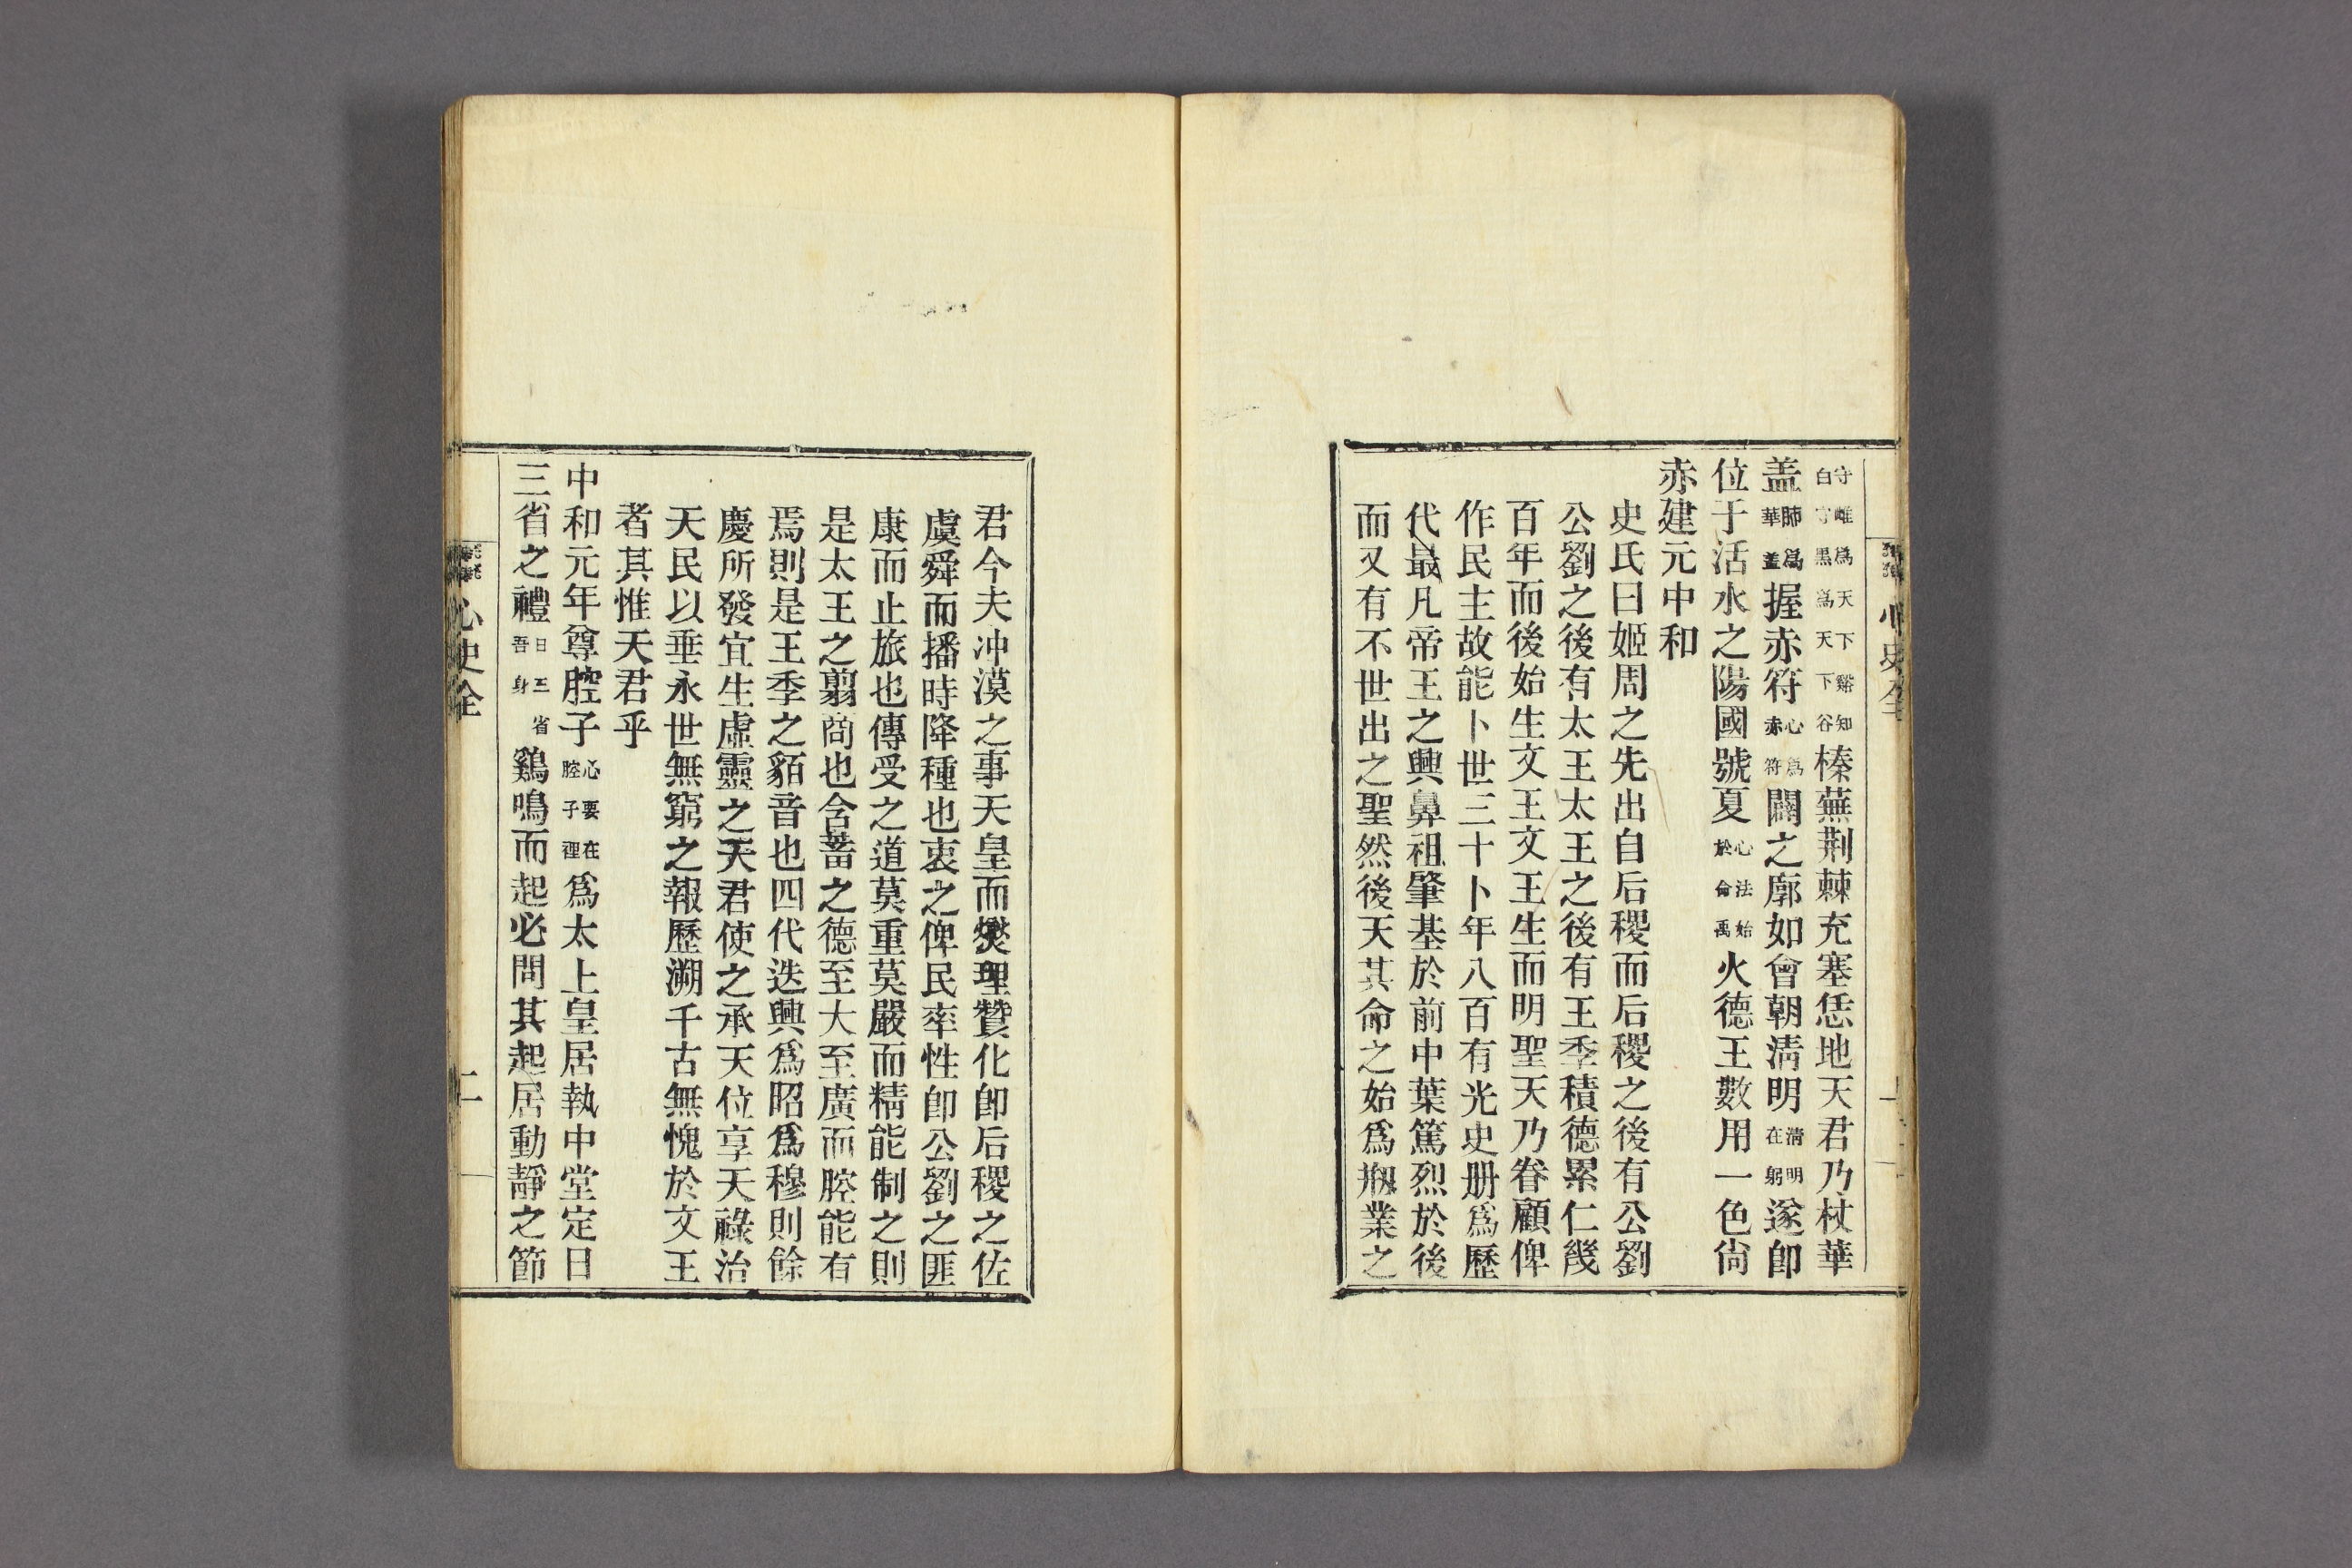 守雌爲天下谿知白守黑爲天下谷榛蕪荆棘充塞恁地天君乃杖華
盖肺爲華盖握赤符心爲赤符闢之廓如會朝淸明淸明在躬遂卽
位于活水之陽國號夏心法始於侖禹火德王數用一色尙
赤建元中和
史氏曰姬周之先出自后稷而后稷之後有公劉
公劉之後有太王太王之後有王季積德累仁幾
百年而後始生文王文王生而明聖天乃眷顧俾
作民主故能卜世三十卜年八百有光史册爲歷
代最凡帝王之興鼻祖肇基於前中葉篤烈於後
而又有不世出之聖然後天其命之始爲刱業之
心史全
君今夫冲漠之事天皇而爕理贊化卽后稷之佐
虞舜而播時降種也衷之俾民率性卽公劉之匪
康而止旅也傳受之道莫重莫嚴而精能制之則
是太王之翦商也含蓄之德至大至廣而腔能有
焉則是王季之貊音也四代迭興爲昭爲穆則餘
慶所發宜生虛靈之天君使之承天位享天祿治
天民以垂永世無窮之報歷溯千古無愧於文王
者其惟天君乎
中和元年尊腔子心要在腔子裡爲太上皇居執中堂定日
三省之禮日三省吾身鷄鳴而起必問其起居動靜之節
心史全
二